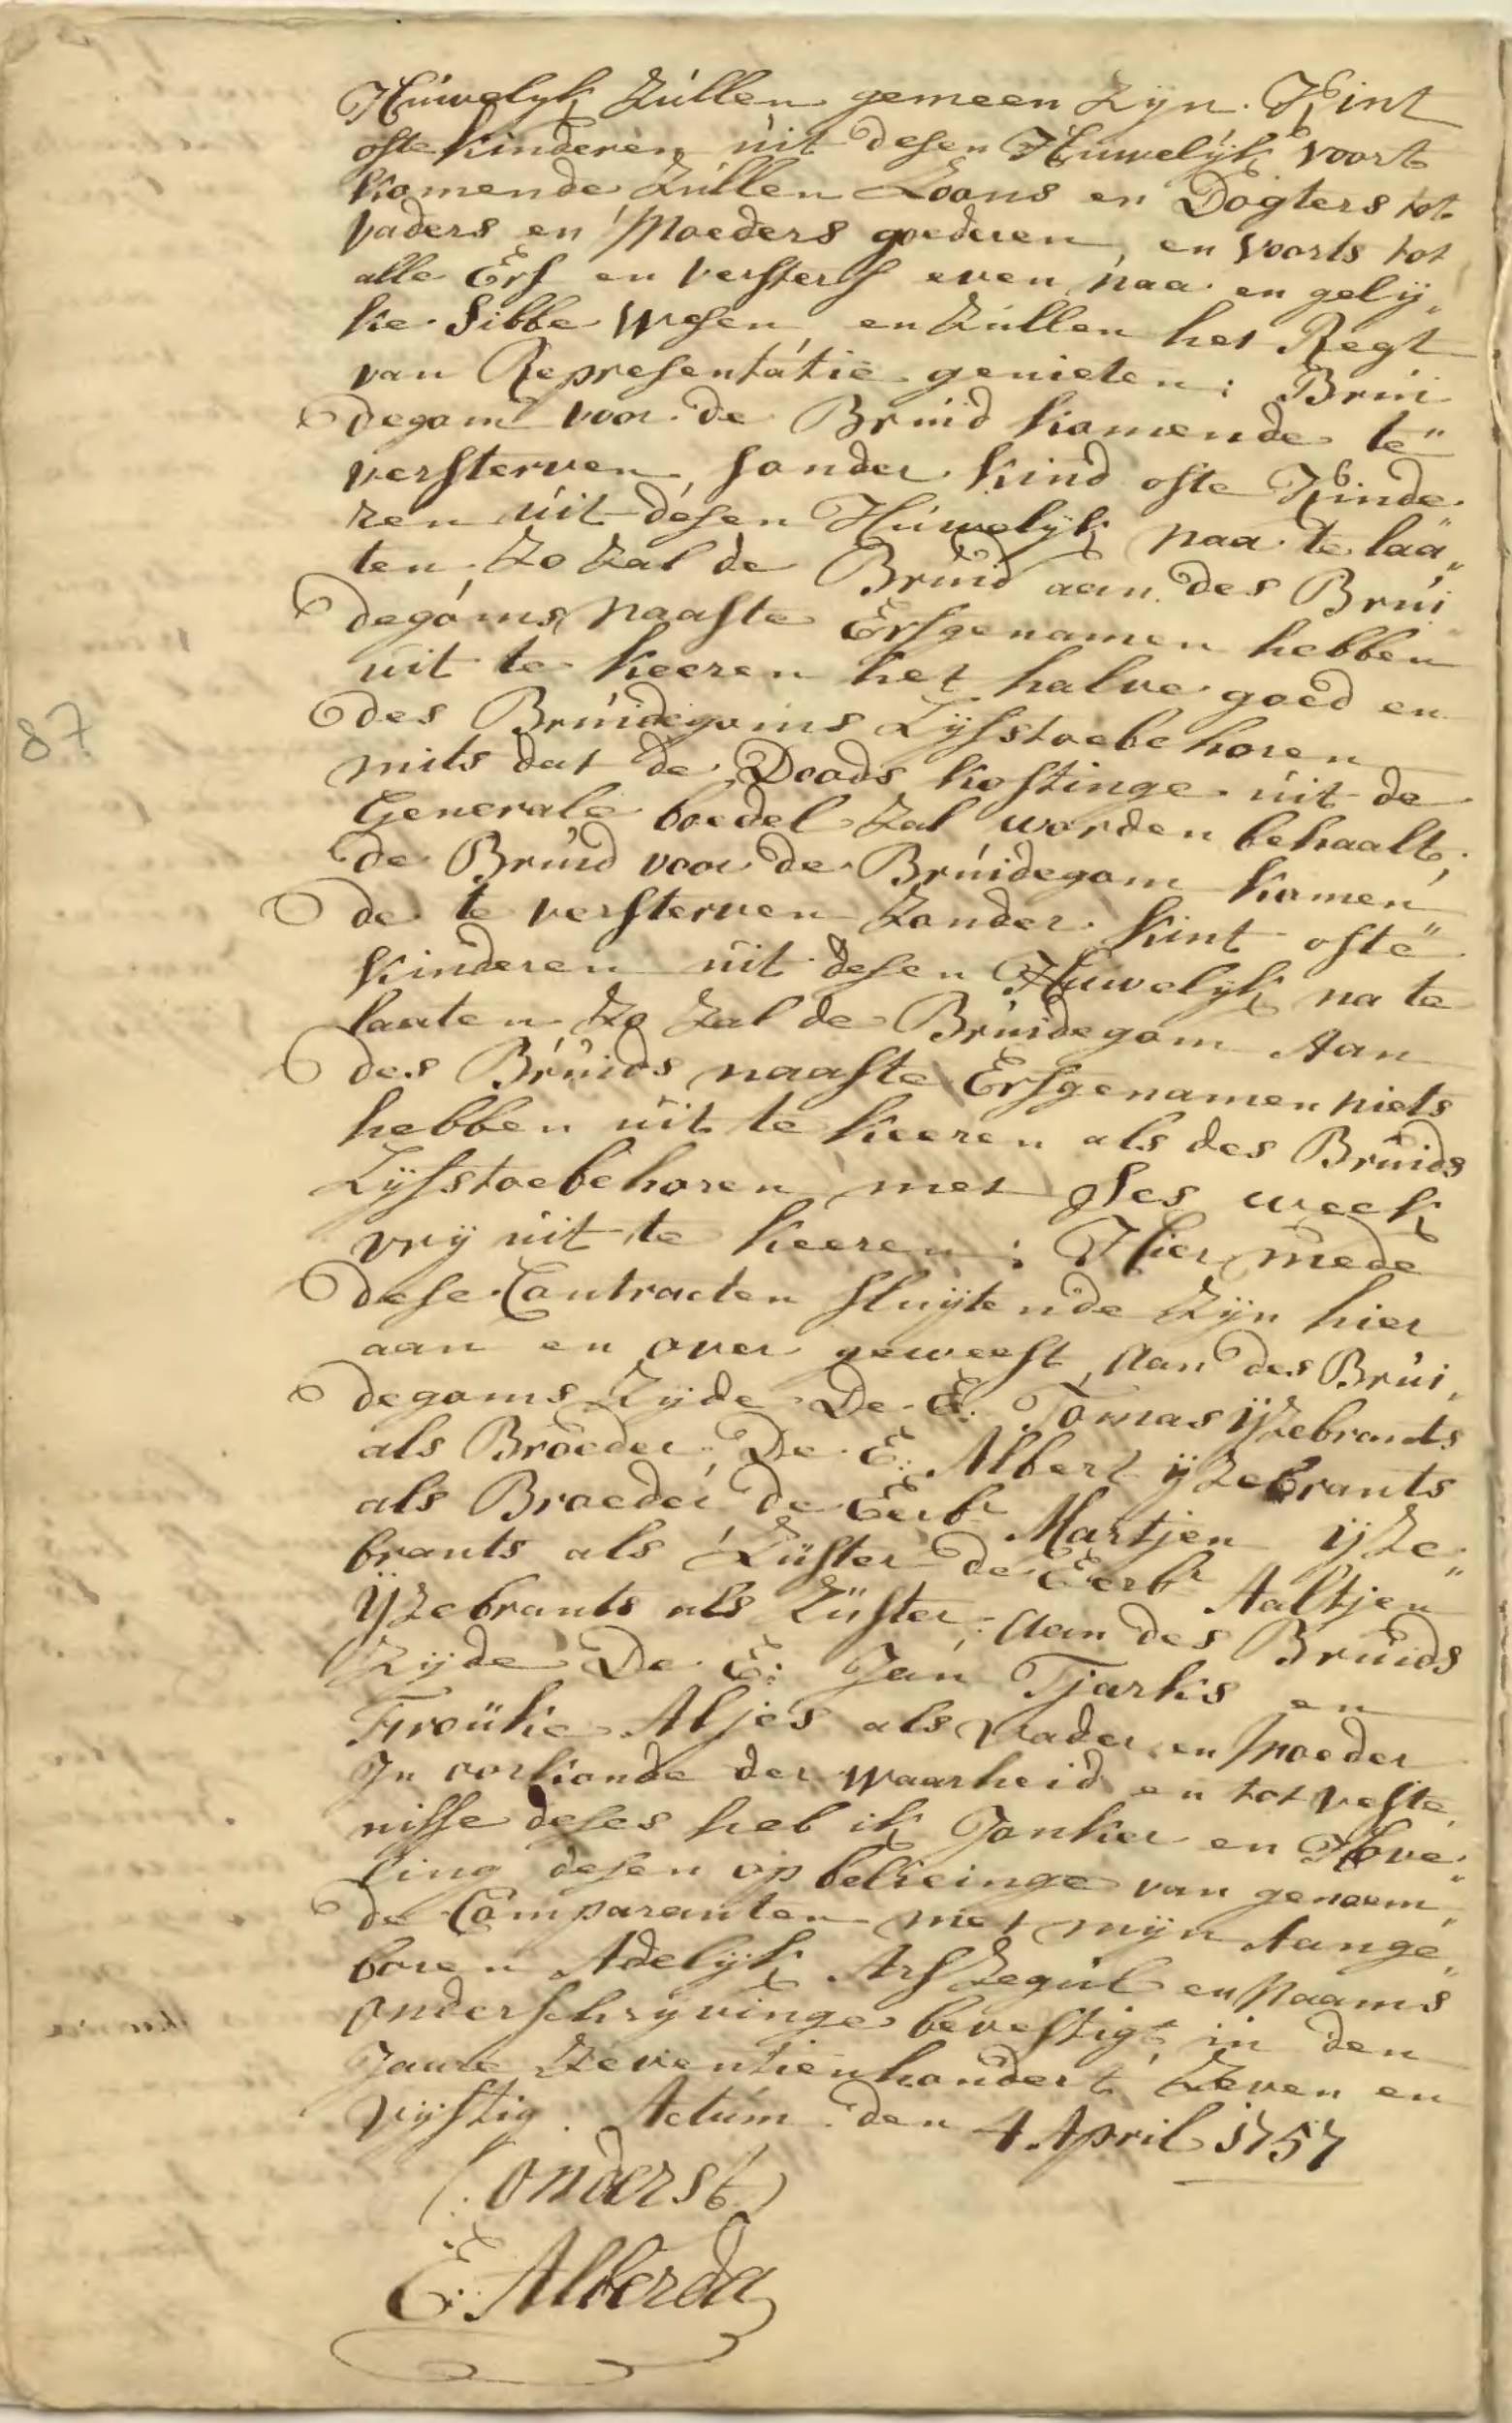 Húwelyk zúllen gemeen zijn. Kint
ofte kinderen úit desen Húwelijk voort
komende zúllen Zoons en Dogters tot
vaders en Moeders goederen, en voorts tot
alle Erf en versterf even naa en gelij„
ke Sibbe wesen en zúllen het Regt
van Representátie genieten: Brúi
degom voor de Brúid komende te"
versterven sonder kind ofte Kinde„
ren úit désen Húwelijk naa te laa„
ten zo zal de Brúid aan des Brúi„
degóms naaste Erfgenamen hebben
uit te keeren het halve goed en
des Brúidegoms Lijfstoebehoren
mits dat de Doods kostinge úit de
Generale boedel zal worden behaalt;
de Brúid voor de Brúidegom komen„
de te versterven zonder kint ofte
kinderen úit desen Húwelijk na te
laaten zo zal de Brúidegom Aan
des Brúids naaste Erfgenamen niets
hebben uit te keeren als des Brúids
Lijfstoebehoren met Ses week
vrij uit te keeren: Hier mede
dese Contracten sluijtende zijn hier
aan en over geweest, Aan des Brúi„
degoms zijde De E: Tomas ijzebrants
als Broeder, De E: Albert ijzebrants
als Broeder de Eerbr Martjen ijze„
brants als Zúster de Eerbr Aaltjen
ijzebrants als Zúster; Aan des Brúids
zijde De E: Jan Tjarks en
Froúke Aljes als vader en Moeder
In oorkonde der waarheid en tot veste„
nisse deses heb ik Jonker en Hove„
ling desen op belieinge van genoem„
de Comparanten met mijn Aange„
boren Adelijk Arfzegúl en Naams
onderschrijvinge bevestigt in den
Jaare Zeventienhondert Zeven en
vijftig. Actúm den 4 April 1757
(: onderst)
E: Alberda
87